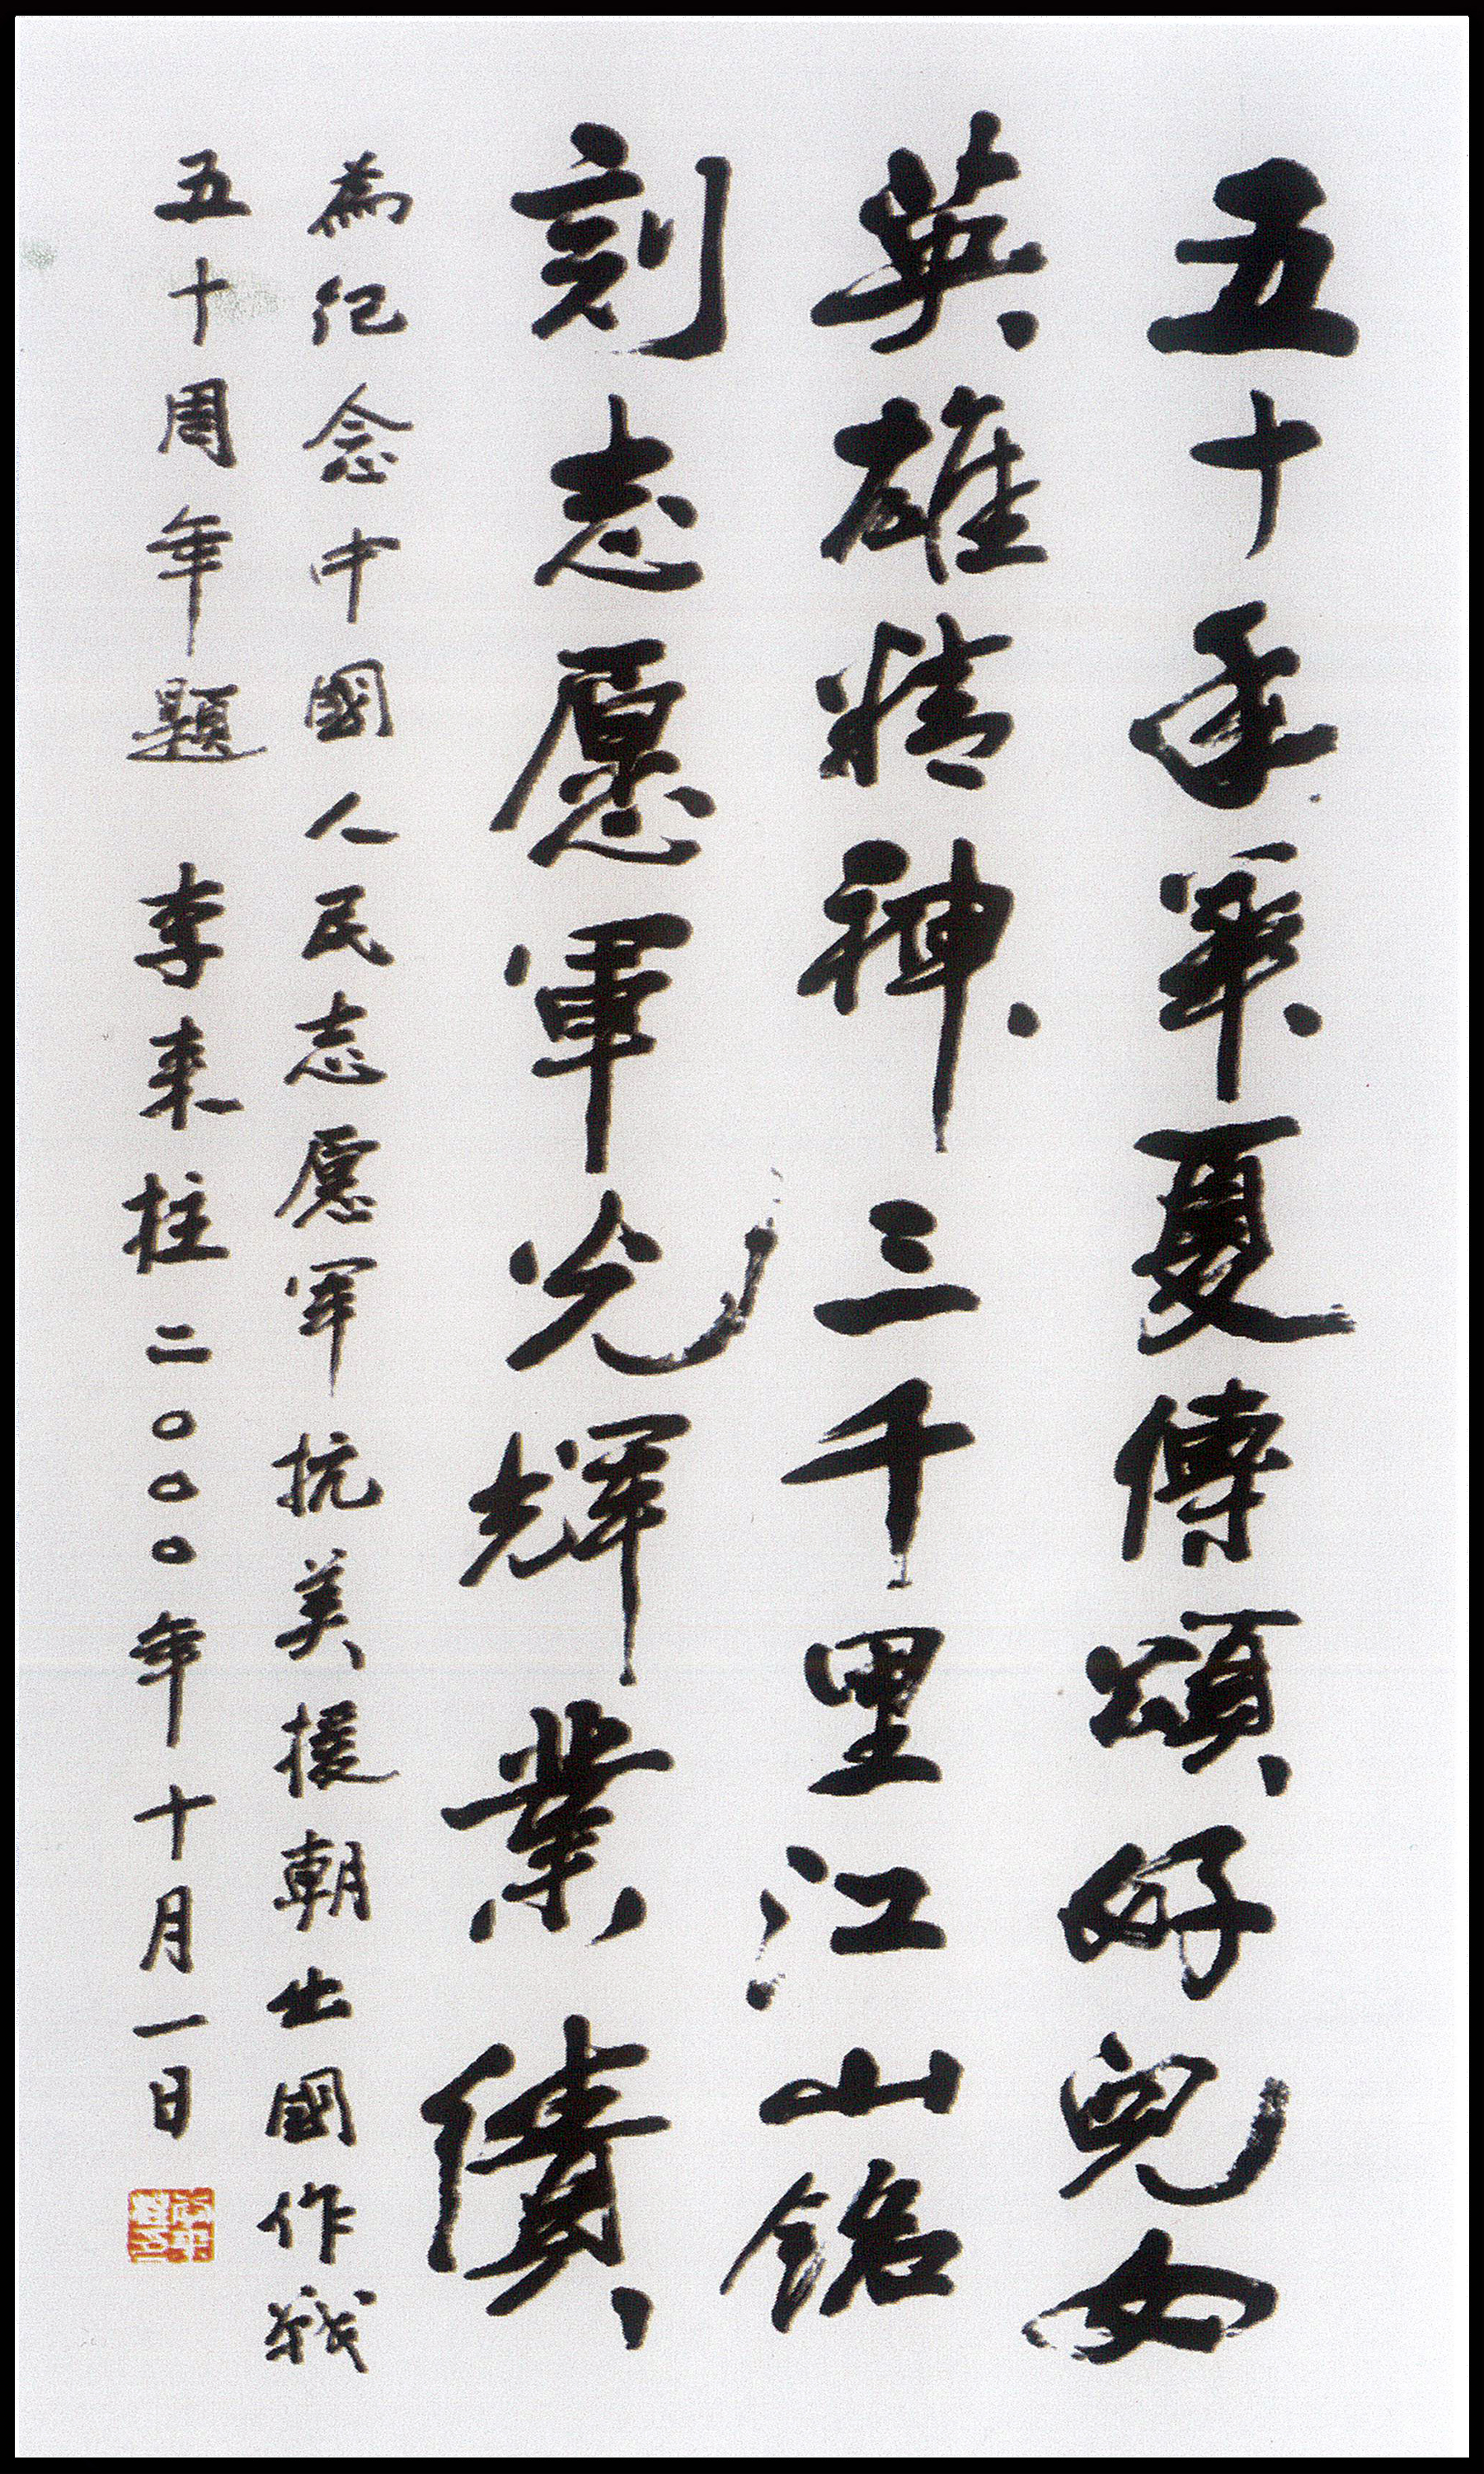 五十年華夏傳頌好兒女
英雄精神三千里江山銘
刻志愿軍光輝業績
為纪念中國人民志愿军抗美援朝出國作戰
五十周年題 李来柱二〇〇〇年十月一日